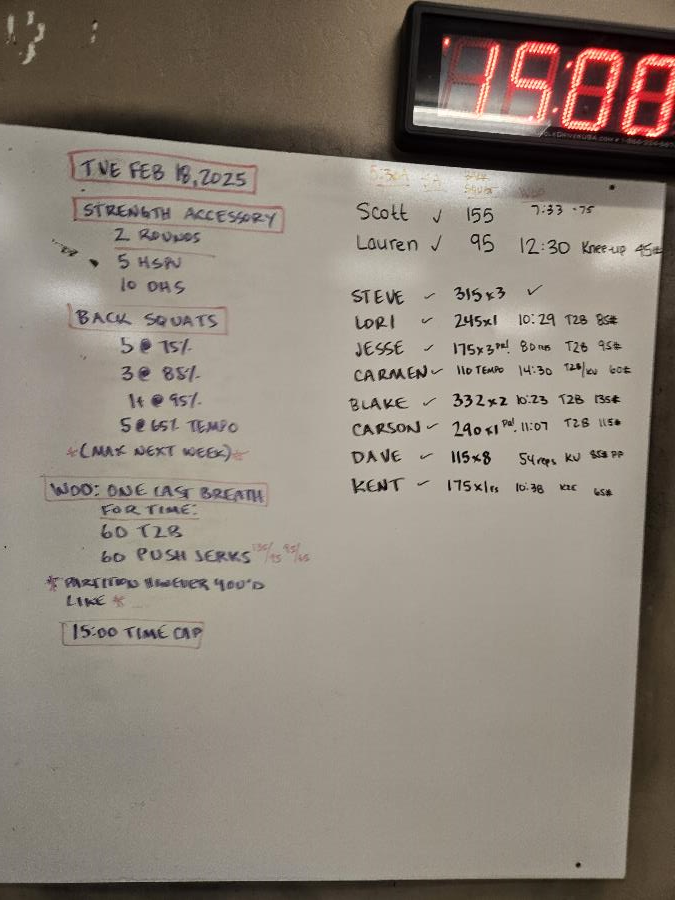 15:00
TUE FEB 18, 2025
STRENGTH ACCESSORY
2 ROUNDS
5 HSPU
10 OHS
BACK SQUATS
5 @ 75%
3 @ 85%
1+ @ 95%
5 @ 65% TEMPO
*(MAX NEXT WEEK)*
WOD: ONE LAST BREATH
FOR TIME:
60 T2B
60 PUSH JERKS 135/95 95/65
*PARTITION HOWEVER YOU'D
LIKE *
15:00 TIME CAP
5:30A
SQUAT
WOD
Scott ✓ 155 7:33 75
Lauren ✓ 95 12:30 Knee-up 45#
STEVE ✓ 315x3 ✓
LORI ✓ 245x1 10:29 T2B 85#
JESSE ✓ 175x3 PR! T2B 95#
CARMEN ✓ 110 TEMPO 14:30 T2B/KU 60#
BLAKE ✓ 332x2 10:23 T2B 135#
CARSON ✓ 290x1 PR! 11:07 T2B 115#
DAVE ✓ 115x8 54 reps KU 85# PP
KENT ✓ 10:38 K2E 65#